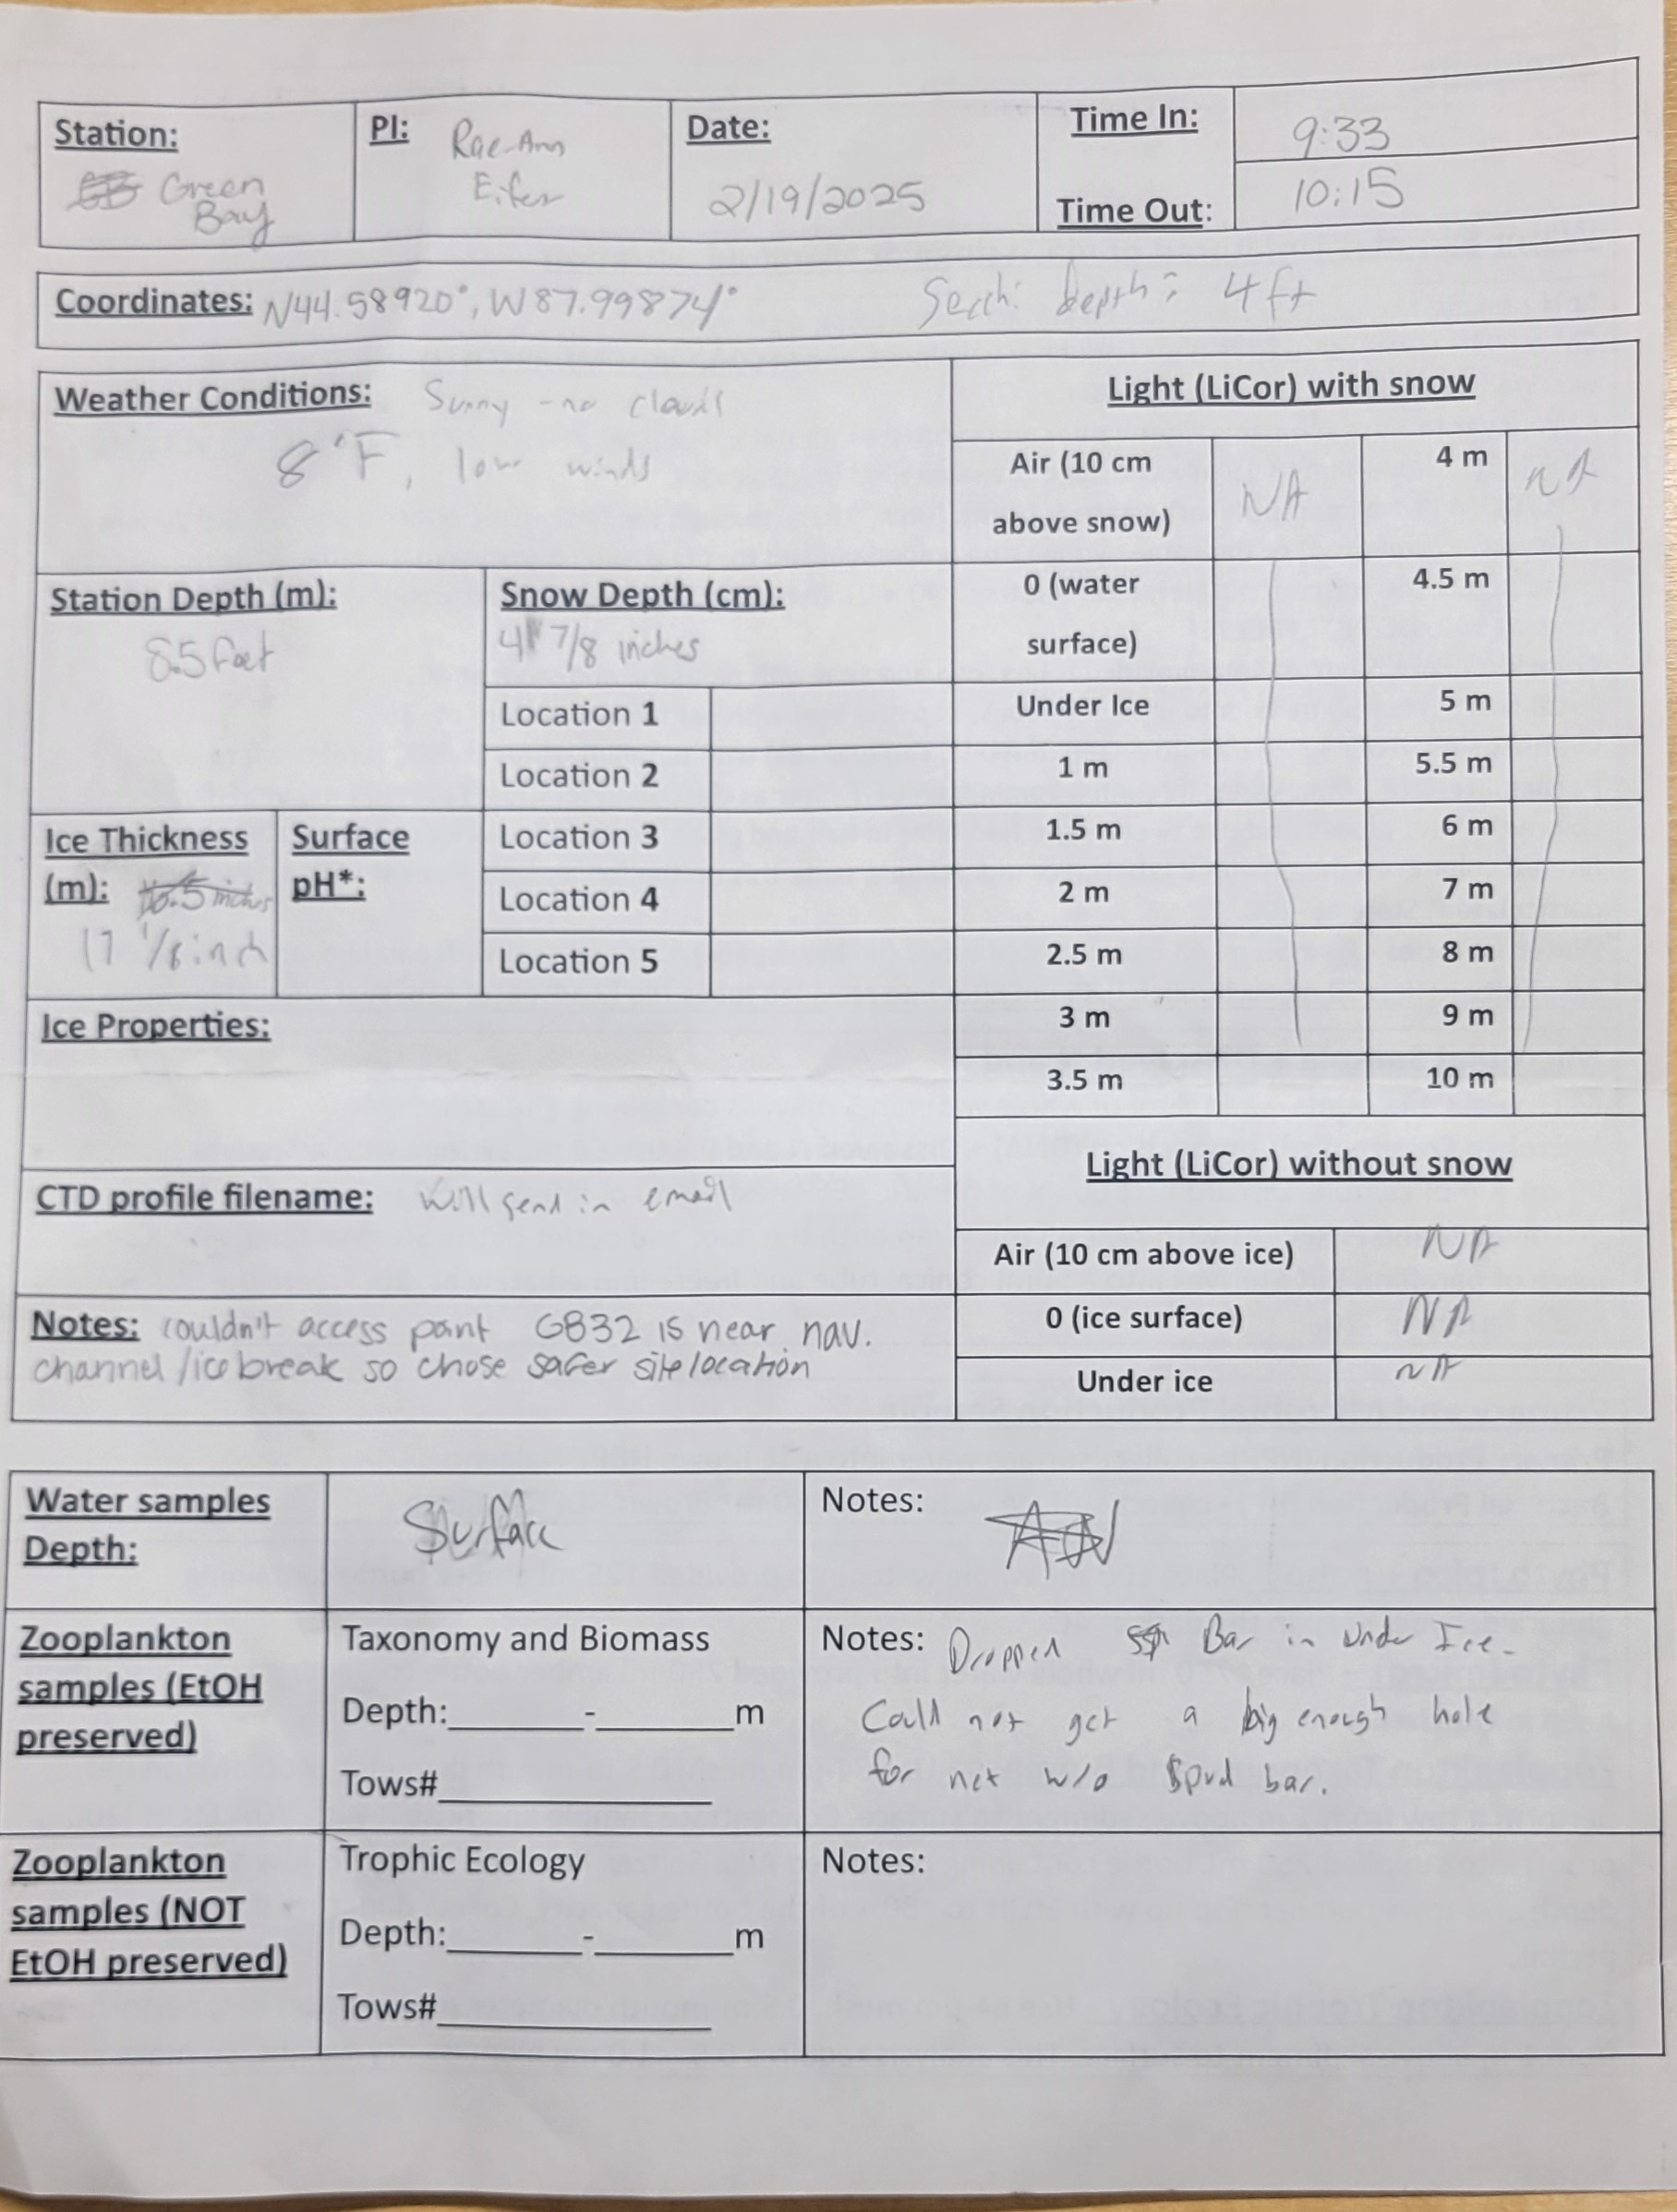 Station:
Green
Bay
PI: Rae-Ann
Eifer
Date:
2/19/2025
Time In: 9:33
Time Out: 10:15
Coordinates: N44.58920°, W87.99874° Secchi depth: 4ft
Weather Conditions: Sunny - no clouds
8°F, low winds
Station Depth (m):
8.5 feet
Snow Depth (cm):
4 7/8 inches
Location 1
Location 2
Location 3
Location 4
Location 5
Ice Thickness
(m): 16.5 inches
17 1/8 inch
Surface
pH*:
Ice Properties:
CTD profile filename: Will send in email
Notes: couldn't access point GB32 is near nav.
channel/ice break so chose safer site location
Light (LiCor) with snow
Air (10 cm
above snow) NA 4 m NA
0 (water
surface) 4.5 m
Under Ice 5 m
1 m 5.5 m
1.5 m 6 m
2 m 7 m
2.5 m 8 m
3 m 9 m
3.5 m 10 m
Light (LiCor) without snow
Air (10 cm above ice) NA
0 (ice surface) NA
Under ice NA
Water samples
Depth:
Surface
Notes:
Zooplankton
samples (EtOH
preserved)
Taxonomy and Biomass
Depth:_______-_______m
Tows#______________
Notes: Dropped Bar in Under Ice.
Could not get a big enough hole
for net w/o spud bar.
Zooplankton
samples (NOT
EtOH preserved)
Trophic Ecology
Depth:_______-_______m
Tows#______________
Notes: